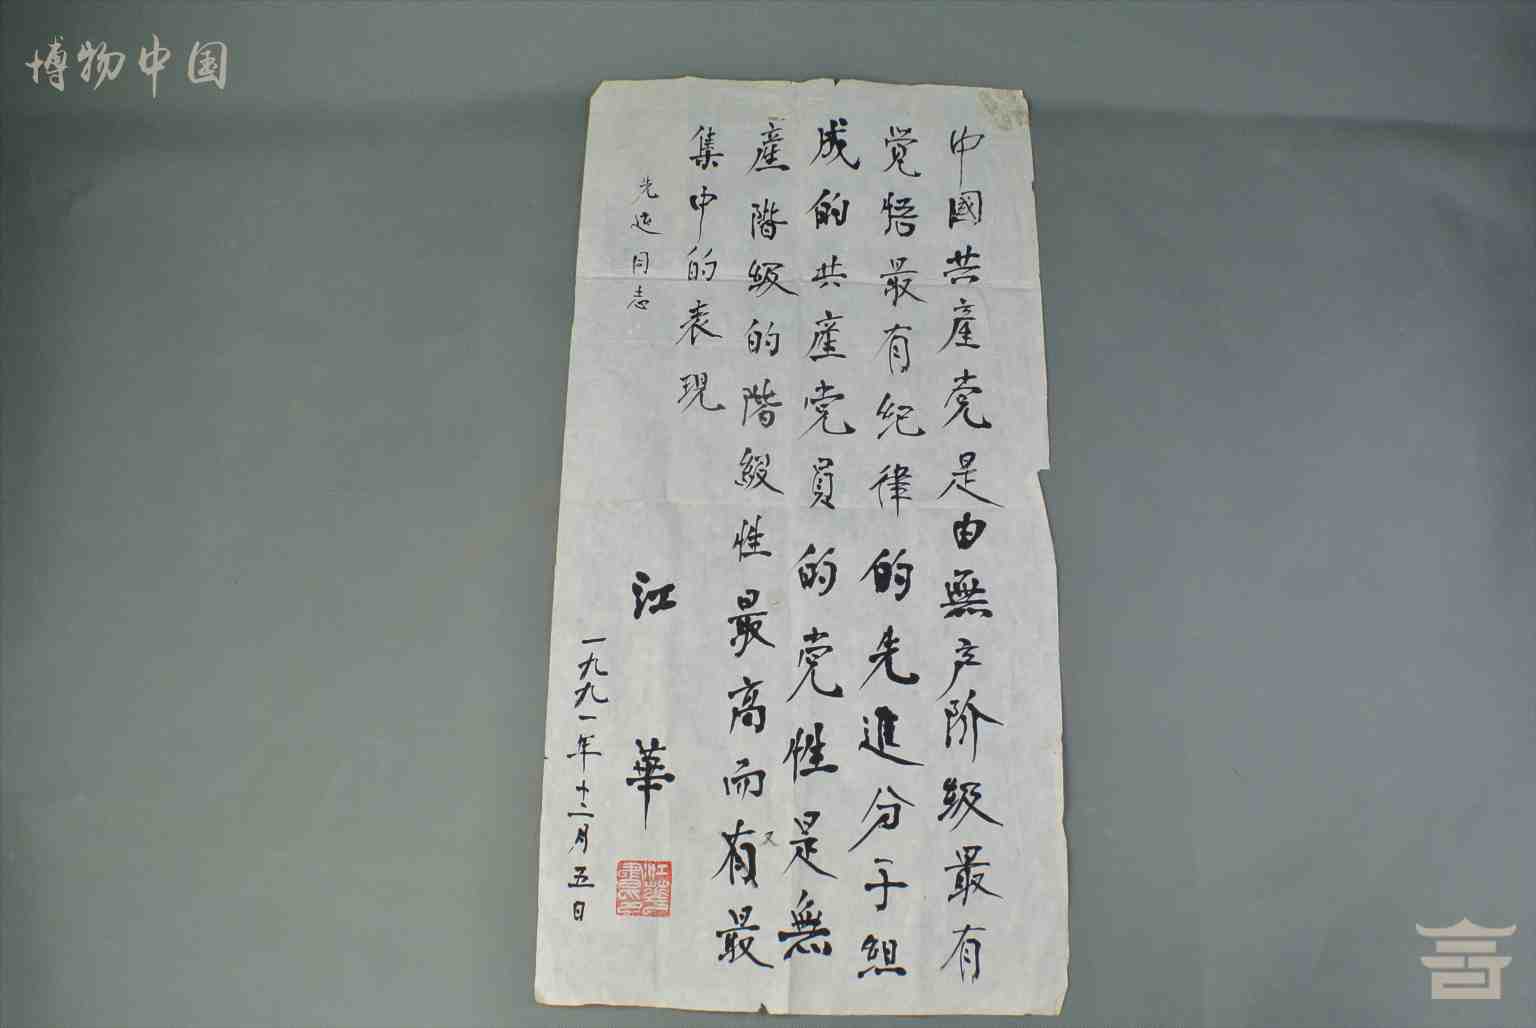 博物中国
中國共產党是由無产阶级最有
觉悟最有纪律的先進分子组
成的共產党員的党性是無
產階級的階級性最高而又有最
集中的表現
同志
江華
一九九一年十二月五日